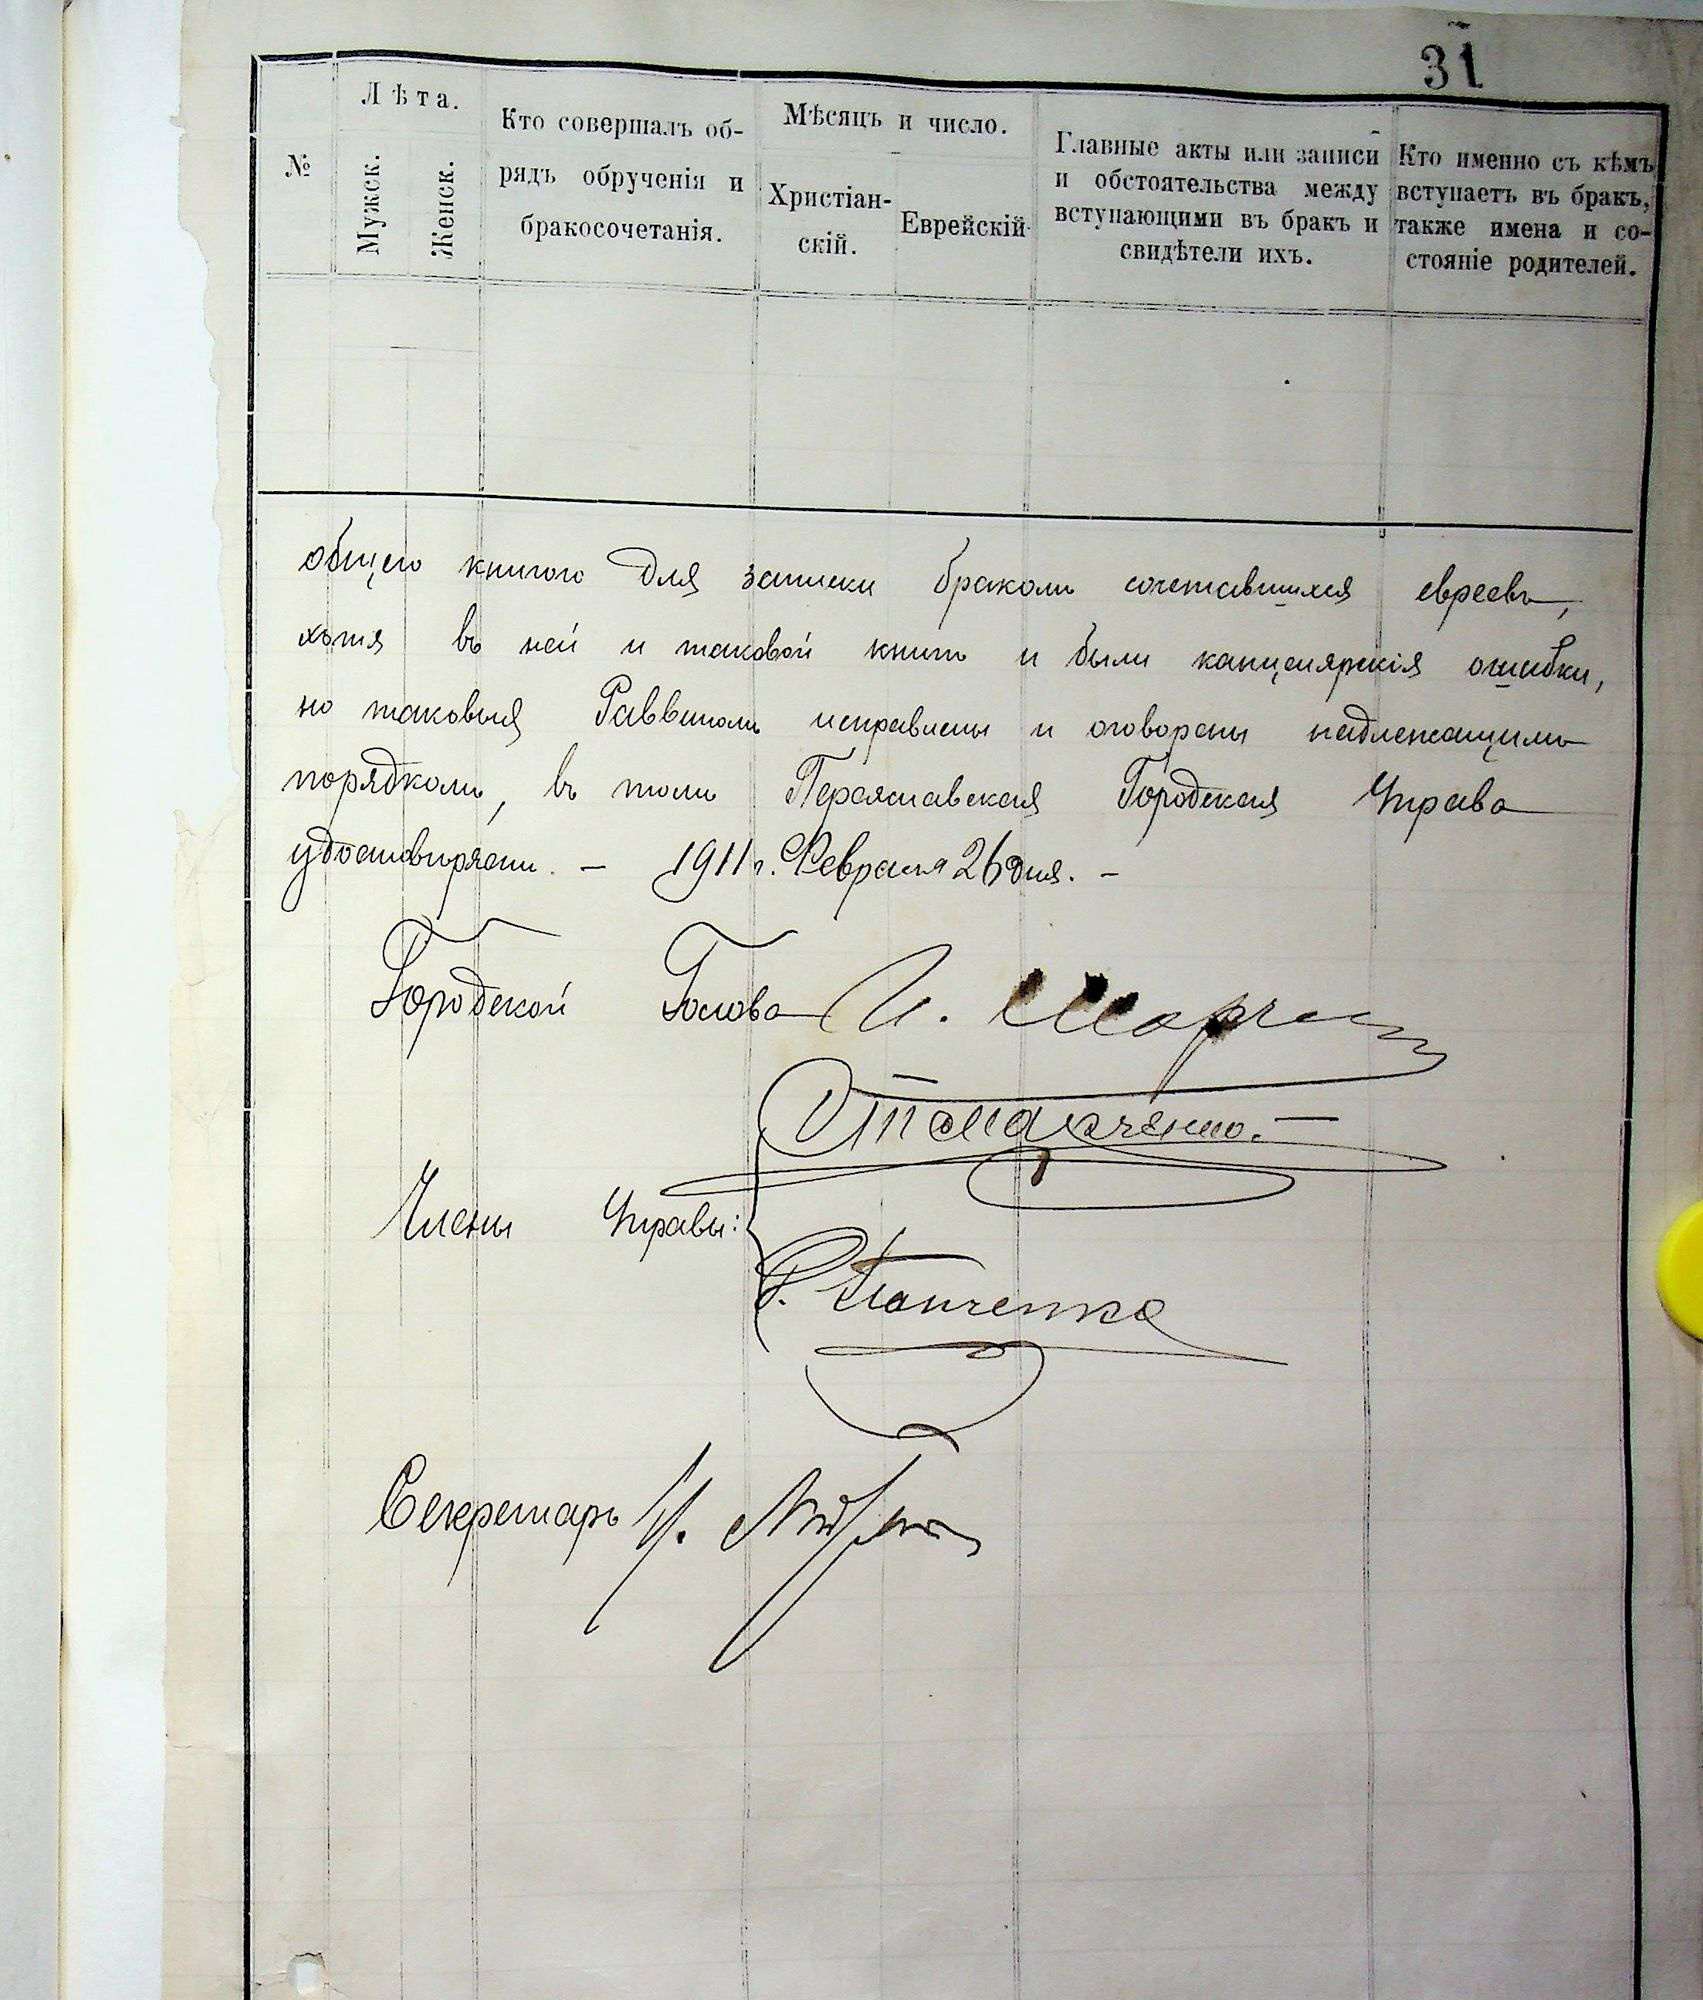 31
№
Лѣта.
Мужск.
Женск.
Кто совершалъ об-
рядъ обрученія и
бракосочетанія.
Мѣсяцъ и число.
Христіан-
скій.
Еврейскій
Главные акты или записи
и обстоятельства между
вступающими въ бракъ и
свидѣтели ихъ.
Кто именно съ кѣмъ
вступаетъ въ бракъ,
также имена и со-
стояніе родителей.
общею книгою для записки бракомъ сочетавшихся евреевъ,
хотя въ ней и таковой книгѣ и были канцелярскія ошибки,
но таковыя Раввиномъ исправлены и оговорены надлежащимъ
порядкомъ, въ томъ Переяславская Городская Управа
удостовѣряетъ. — 1911 г. Февраля 26 дня. —
Городской Голова И.
Члены Управы:
Панченко
Секретарь